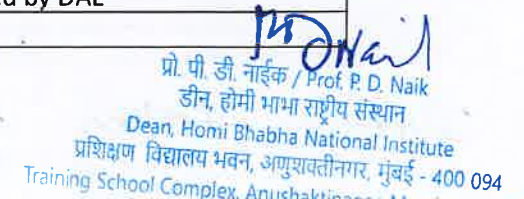 by DAE
PD Naik
प्रो. पी. डी. नाईक / Prof. P. D. Naik
डीन, होमी भाभा राष्ट्रीय संस्थान
Dean, Homi Bhabha National Institute
प्रशिक्षण विद्यालय भवन, अणुशक्तीनगर, मुंबई - 400 094
Training School Complex, Anushaktinagar